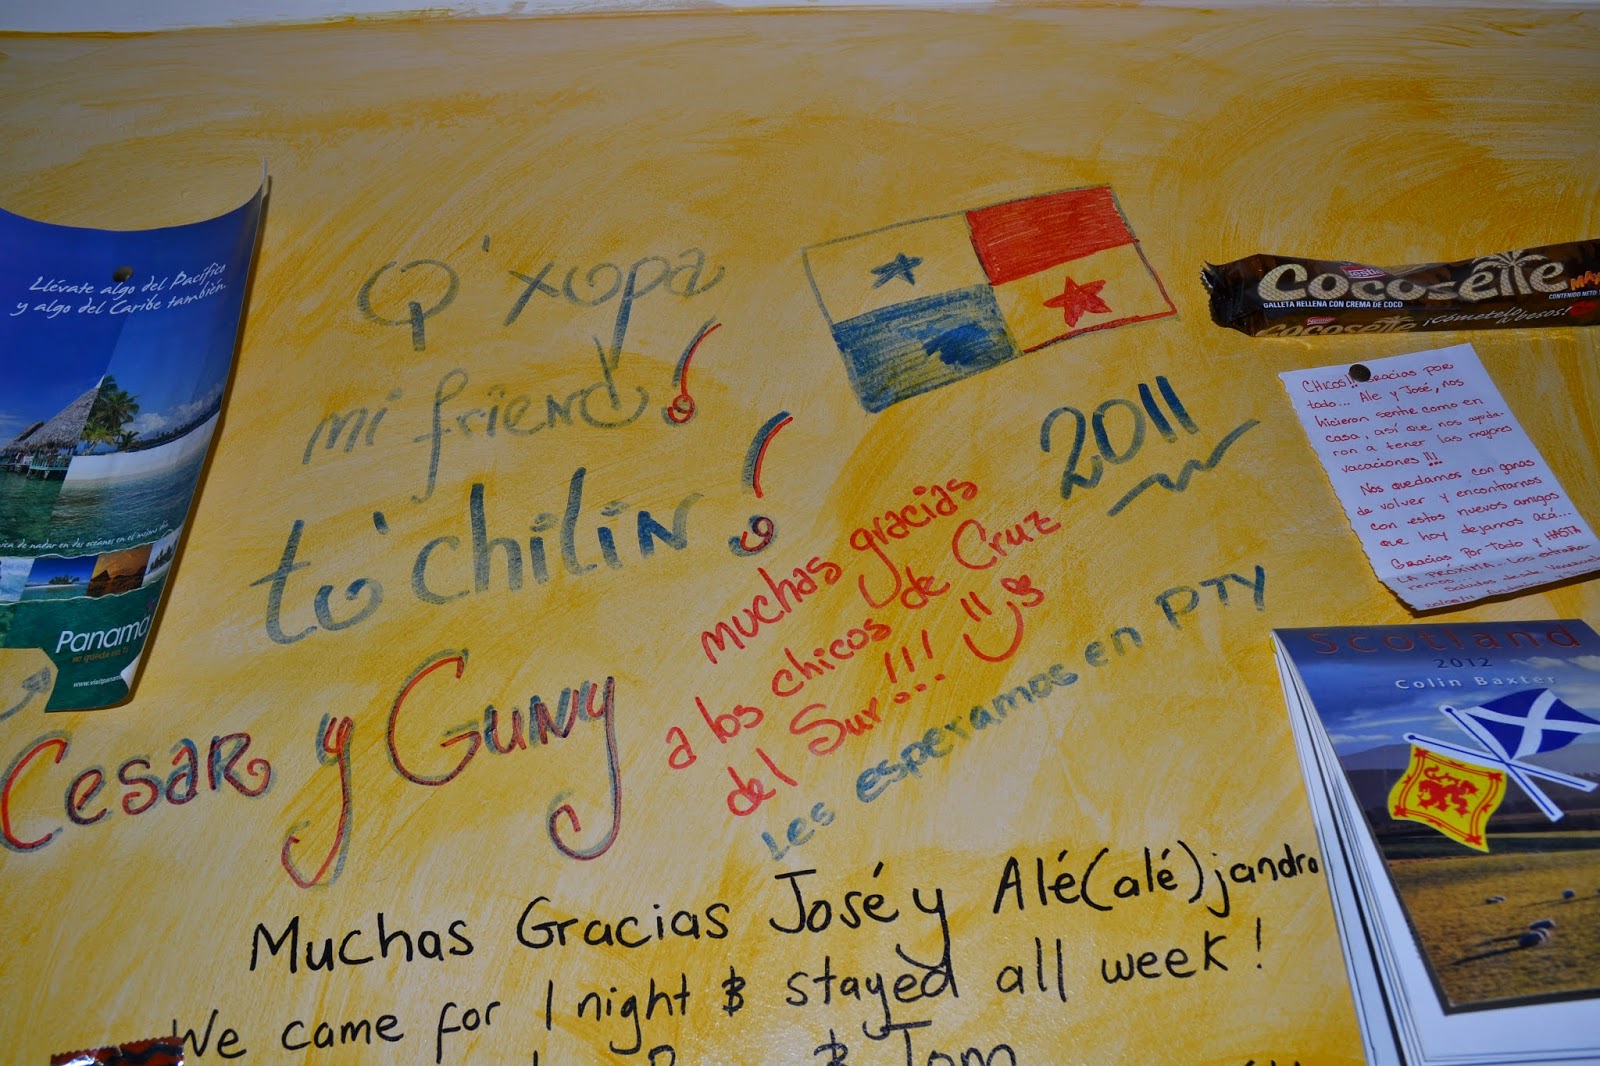 Llévate algo del Pacífico
y algo del Caribe también.
Panamá
Q' xopa
mi friend!
to' chilin!
Cesar y Guny
2011
muchas gracias
a los chicos de Cruz
del Sur!!!
Les esperamos en PTY
Muchas Gracias José y Alé(alé)jandro
We came for 1 night & stayed all week!
& Tom
Nestlé
Cocosette MAXI
GALLETA RELLENA CON CREMA DE COCO
CONTENIDO NETO
Cocosette ¡Cómetelo a besos!
CHICOS!! Gracias por
todo... Ale y José, nos
hicieron sentir como en
casa, así que nos ayuda-
ron a tener las mejores
vacaciones!!!
Nos quedamos con ganas
de volver y encontrarnos
con estos nuevos amigos
que hoy dejamos acá...
Gracias Por Todo y HASTA
LA PRÓXIMA... Los extraña-
remos...
Saludos desde Venezuela
Scotland
2012
Colin Baxter